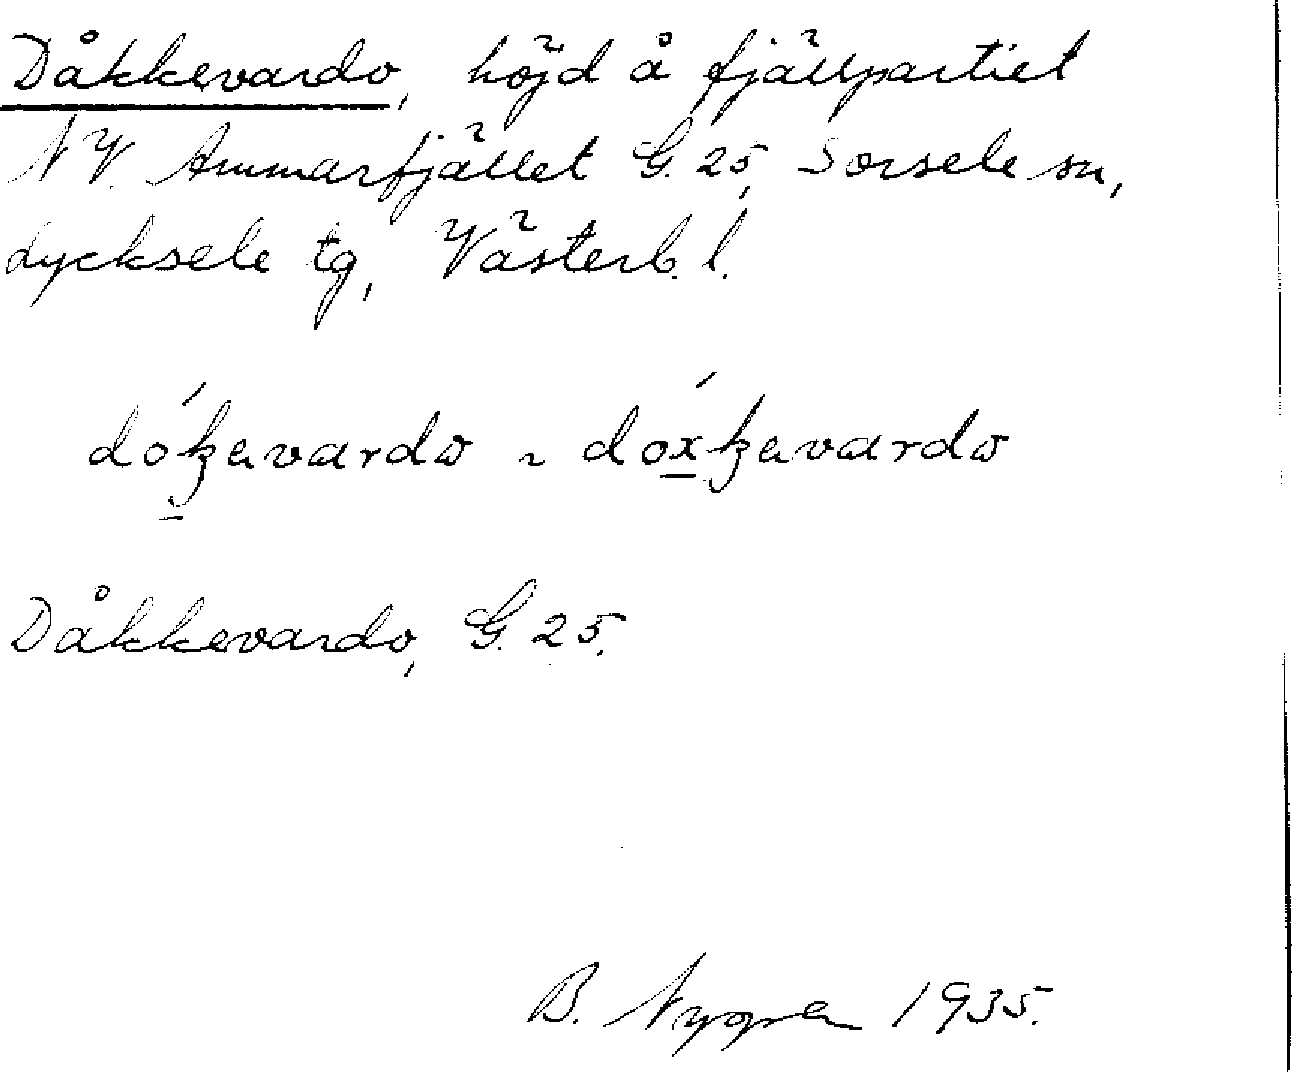 Dåkkevardo, höjd å fjällpartiet
NV. Ammarfjället G. 25, Sorsele sn,
Lycksele tg, Västerb. l.
dókevardo ~ doxkevardo
Dåkkevardo, G. 25.
B. Nygren 1935.